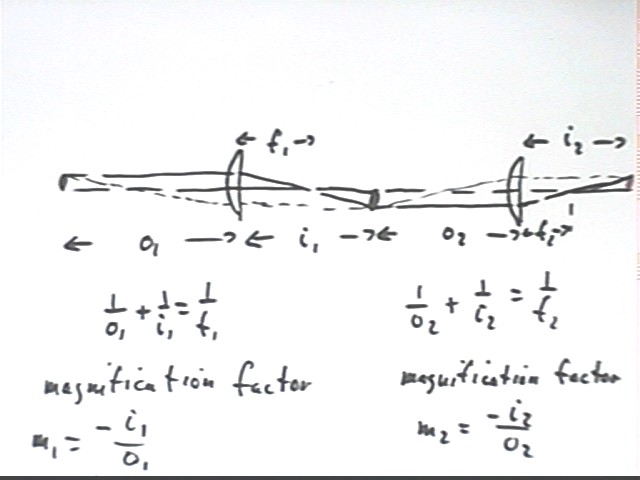 ← f₁ →
← i₂ →
← o₁ → ← i₁ → ← o₂ → ← f₂ →
1/o₁ + 1/i₁ = 1/f₁
1/o₂ + 1/i₂ = 1/f₂
magnification factor
m₁ = -i₁/o₁
magnification factor
m₂ = -i₂/o₂